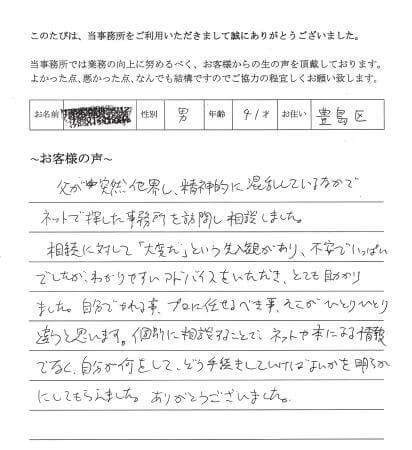 このたびは、当事務所をご利用いただきまして誠にありがとうございました。
当事務所では業務の向上に努めるべく、お客様からの生の声を頂戴しております。
よかった点、悪かった点、なんでも結構ですのでご協力の程宜しくお願い致します。
お名前 性別 男 年齢 41才 お住い 豊島区
~お客様の声~
父が突然他界し、精神的に混乱しているなかで
ネットで探した事務所を訪問し相談しました。
相続に対して「大変だ」という先入観があり、不安でいっぱい
でしたが、わかりやすいアドバイスをいただき、とても助かり
ました。自分でやれる事、プロに任せるべき事、そこがひとりひとり
違うと思います。個別に相談することで、ネットや本による情報
でなく、自分が何をして、どう手続きしていけばよいかを明らか
にしてもらえました。ありがとうございました。